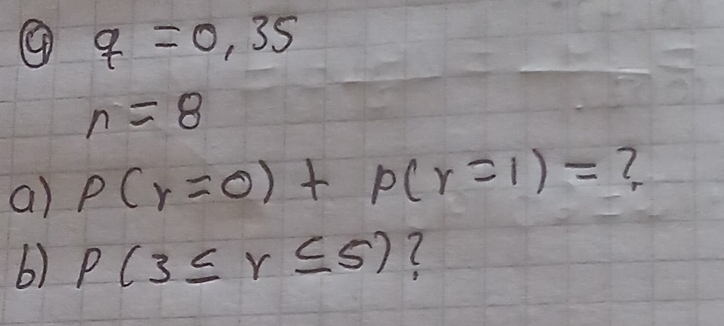 ④ q = 0,35
n = 8
a) P(r=0) + P(r=1) = ?
b) P(3 ≤ r ≤ 5)?